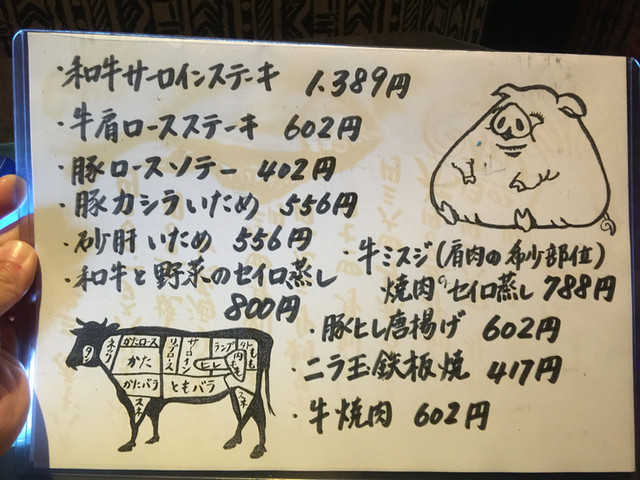 ・和牛サーロインステーキ 1.389円
・牛肩ロースステーキ 602円
・豚ロースソテー 402円
・豚カシラいため 556円
・砂肝いため 556円
・和牛と野菜のセイロ蒸し
800円
・牛ミスジ(肩肉の希少部位)
焼肉のセイロ蒸し 788円
・豚ヒレ唐揚げ 602円
・ニラ玉鉄板焼 417円
・牛焼肉 602円
タン
ネック
かたロース
かた
かたバラ
リブロース
サーロイン
ヒレ
ランプ
ともバラ
もも
スネ
スネ